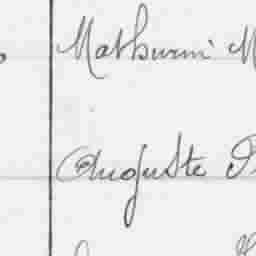 Mathurin M
Auguste P